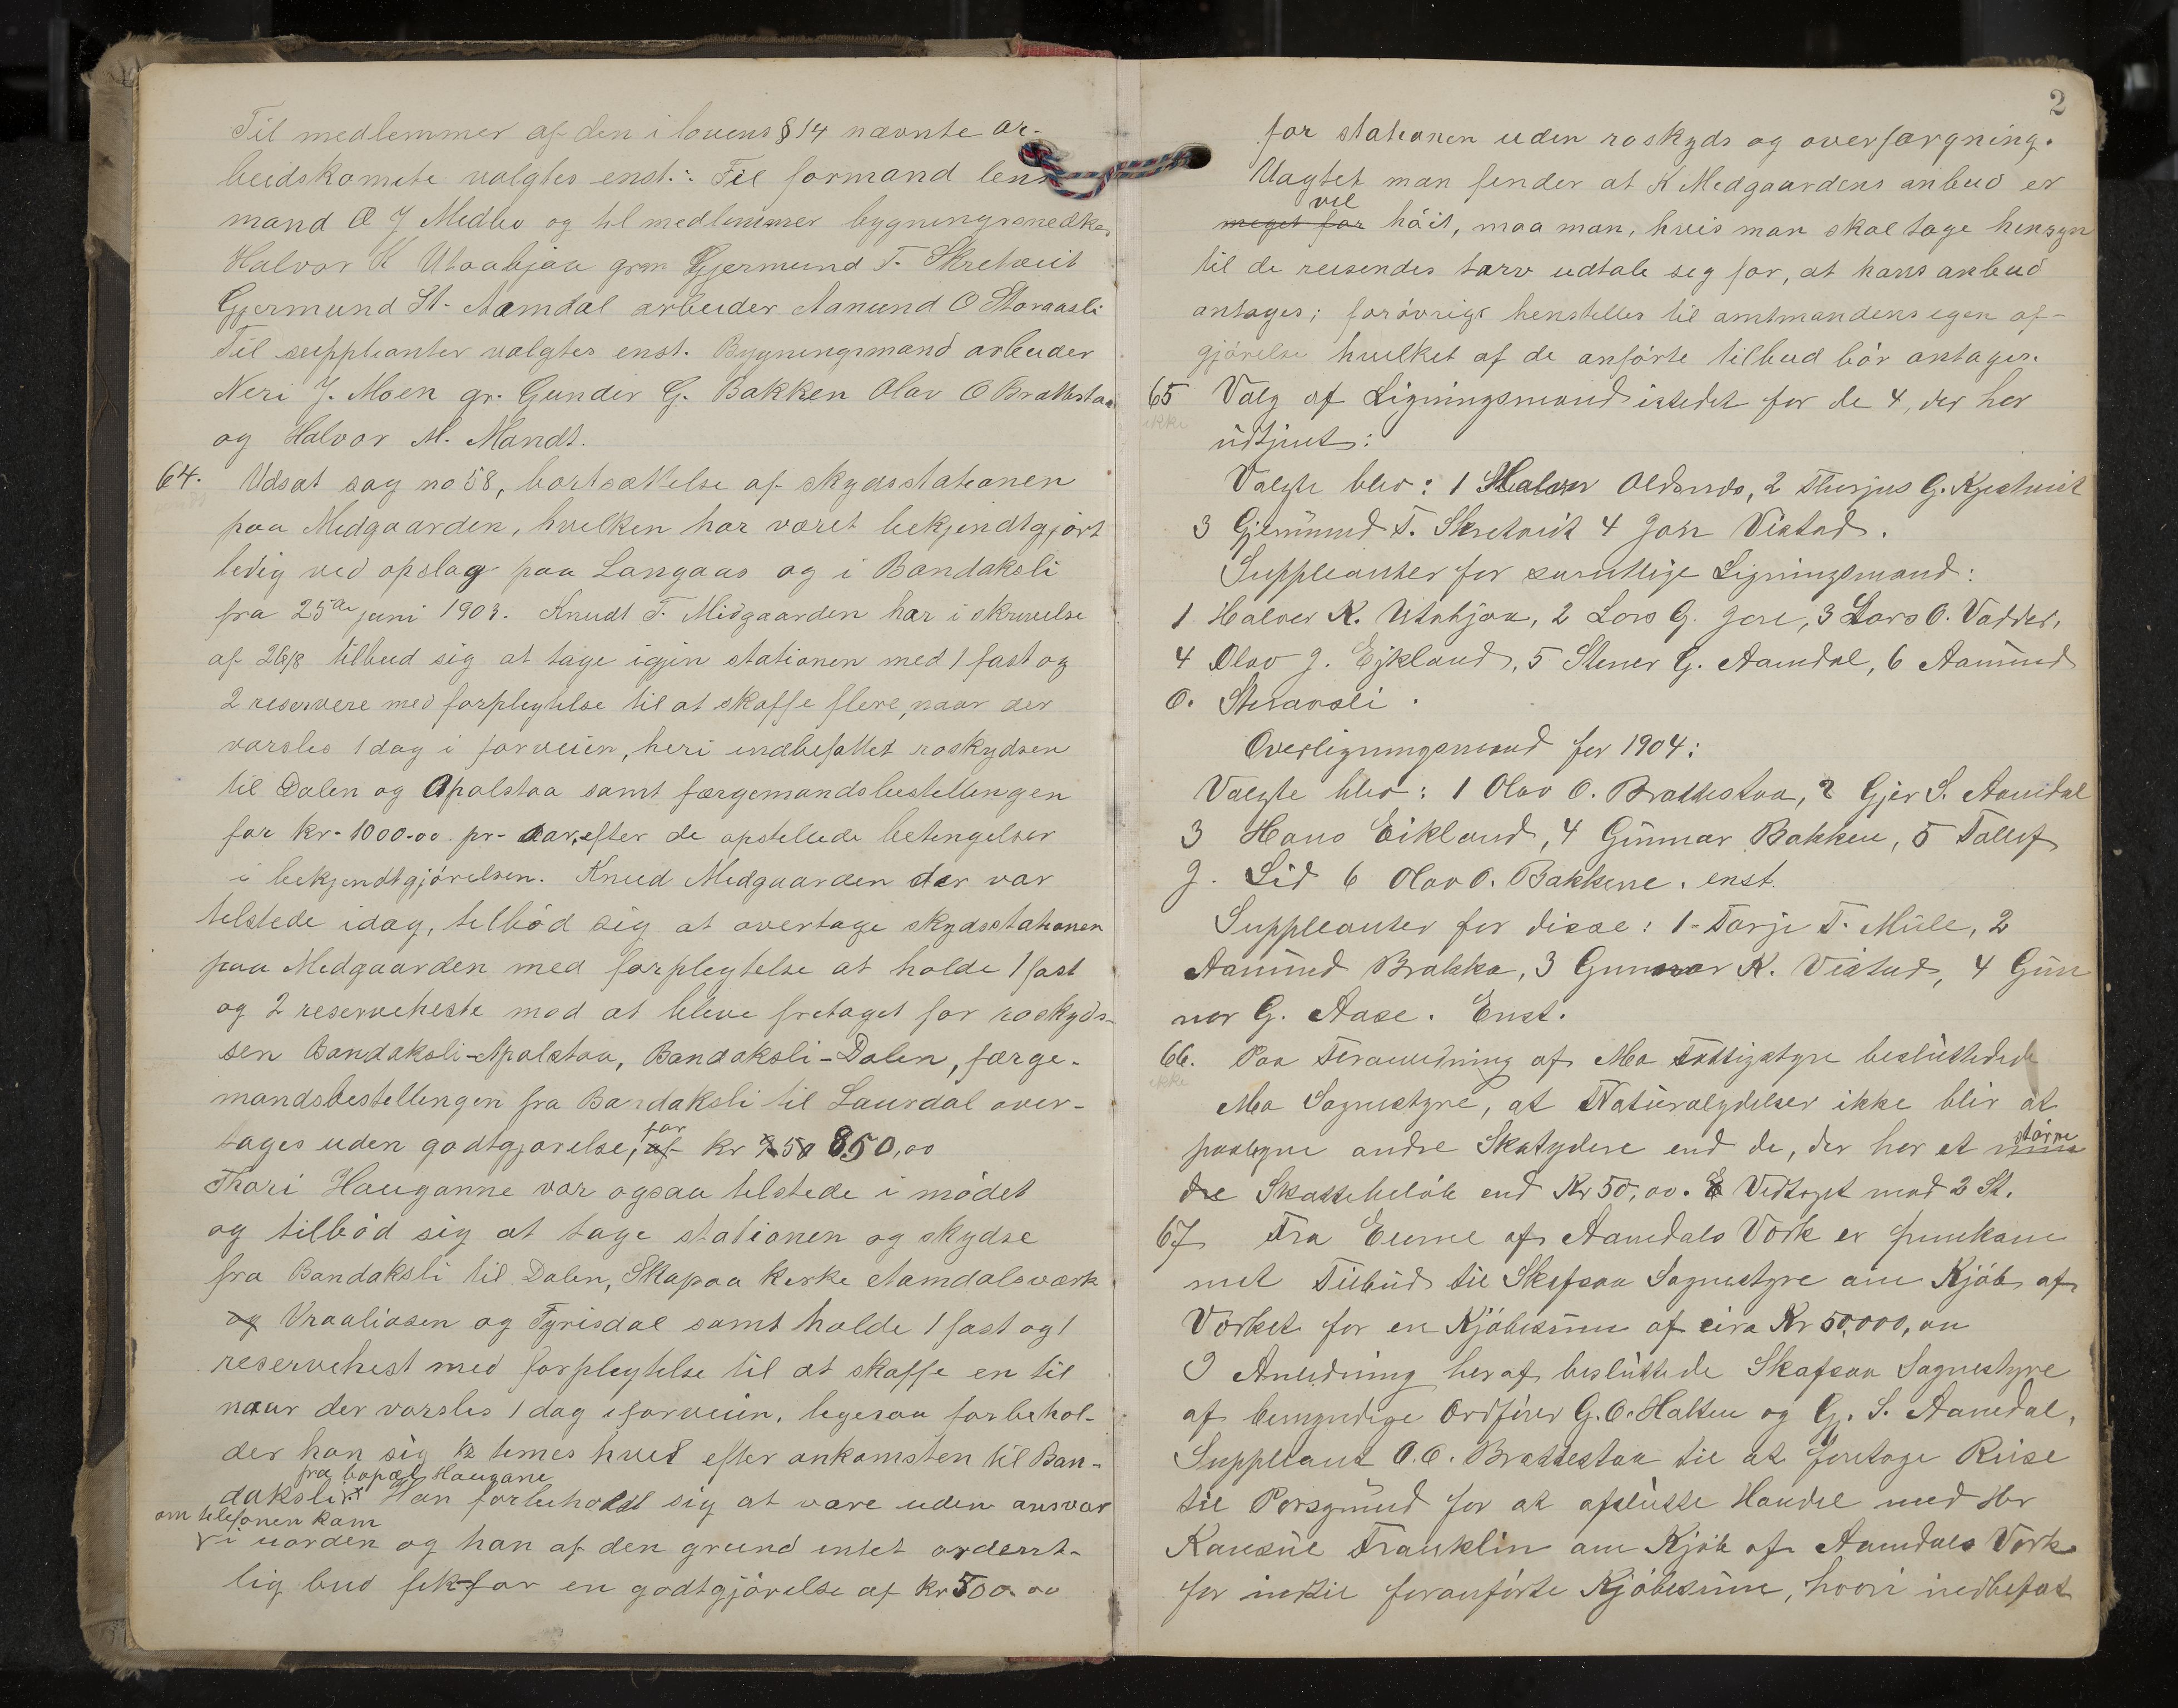 Til medlemmer af den i lovens § 14 nævnte ar-
beidskomite valgtes enst.: Til formand lens
mand O J Medbø og til medlemmer bygningssnedker
Halvor K Utaabjaa grm Gjermund T. Skretveit
Gjermund St. Aamdal arbeider Aanund O Storaasli
Til suppleanter valgtes enst. Bygningsmand arbeider
Neri J. Moen gr. Gunder G. Bakken Olav O Brattestaa
og Halvor M. Mandt.
64. Udsat sag no 58, bortsættelse af skydsstationen
paa Midgaarden, hvilken har været bekjendtgjørt
ledig ved opslag paa Langaas og i Bandaksli
fra 25de juni 1903. Knudt T. Midgaarden har i skrivelse
af 26/8 tilbud sig at tage igjen stationen med 1 fast og
2 reservere med forpleytelse til at skaffe flere, naar der
varsles 1 dag i forveien, heri indbefattet roskydsen
til Dalen og Apalstaa samt færgemandsbestellingen
for kr. 1000.00 pr. aar, efter de opstillede betingelser
i bekjendtgjørelsen. Knud Midgaarden der var
tilstede idag, tilbød sig at overtage skydsstationen
paa Midgaarden med forpleytelse at holde 1 fast
og 2 reserveheste mod at bleve fretaget for roskyds-
sen Bandaksli-Apalstaa, Bandaksli-Dalen, færge-
mandsbestellingen fra Bandaksli til Laurdal over-
for
tages uden godtgjørelse, af kr 850,00
Thori Hauganne var ogsaa tilstede i mødet
og tilbød sig at tage stationen og skydse
fra Bandaksli til Dalen, Skapaa kirke Aamdalsværk
og Vraaliosen og Tyrisdal samt holde 1 fast og 1
reservehest med forpleytelse til at skaffe en til
naar der varsles 1 dag iforveien. ligesaa forbehol-
der han sig ½ times hvil efter ankomsten til Ban-
fra bopæl Haugane
daksli. Han forbeholdt sig at være uden ansvar
om telefonen kom
i uorden og han af den grund intet ordent-
lig bud fik for en godtgjørelse af kr 500.00
2
for stationen uden roskyds og overfærgning.
Uagtet man finder at K Midgaardens anbud er
vel
meget for høit, maa man, hvis man skal tage hensyn
til de reisendes tarv udtale sig for, at hans anbud
antages; forøvrigt henstilles til amtmandens egen af-
gjørelse hvilket af de anførte tilbud bør antages.
65 Valg af Ligningsmænd istedet for de 4, der har
ikke
udtjent:
Valgte blev: 1 Halvor Oldsnds, 2 Thorjus G. Kjestveit
3 Gjermund T. Skretveit 4 Jon Vistad.
Suppleanter for samtlige Ligningsmænd:
1 Halvor K. Utabjaa, 2 Lars G. Jore, 3 Lars O. Vadder,
4 Olav J. Eikland, 5 Stener G. Aamdal, 6 Aanund
O. Storaasli.
Overligningsmænd for 1904:
Valgte blev: 1 Olav O. Brattestaa, 2 Gjer S. Aamdal
3 Hans Eikland, 4 Gunnar Bakken, 5 Tallef
J. Lid 6 Olav O. Bakkene. enst.
Suppleanter for disse: 1. Tarje T. Mule, 2
Aanund Brakka, 3 Gunnar K. Vistad, 4 Gun
nar G. Aase. Enst.
66. Paa Foranledning af Mo Fattigstyre besluttedede
ikke
Mo Sognestyre, at Naturalydelser ikke blir at
større
paalegne andre Skatydere end de, der har et min
dre Skattebeløb end Kr 50,00. Vedtaget mod 2 St.
67 Fra Eierne af Aamdals Værk er fremkom
met Tilbud til Skafsaa Sognestyre om Kjøb af
Værket for en Kjøbesum af cira Kr 50,000,00
I Anledning heraf besluttede Skafsaa Sognestyre
at bemyndige Ordfører G. O. Halten og G. S. Aamdal,
Suppleant O. O. Brattestaa til at foretage Reise
til Porsgrund for at afslutte Handel med Hr
Konsul Franklin om Kjøb af Aamdals Værk
for indtil foranførte Kjøbesum, hvori indbefat